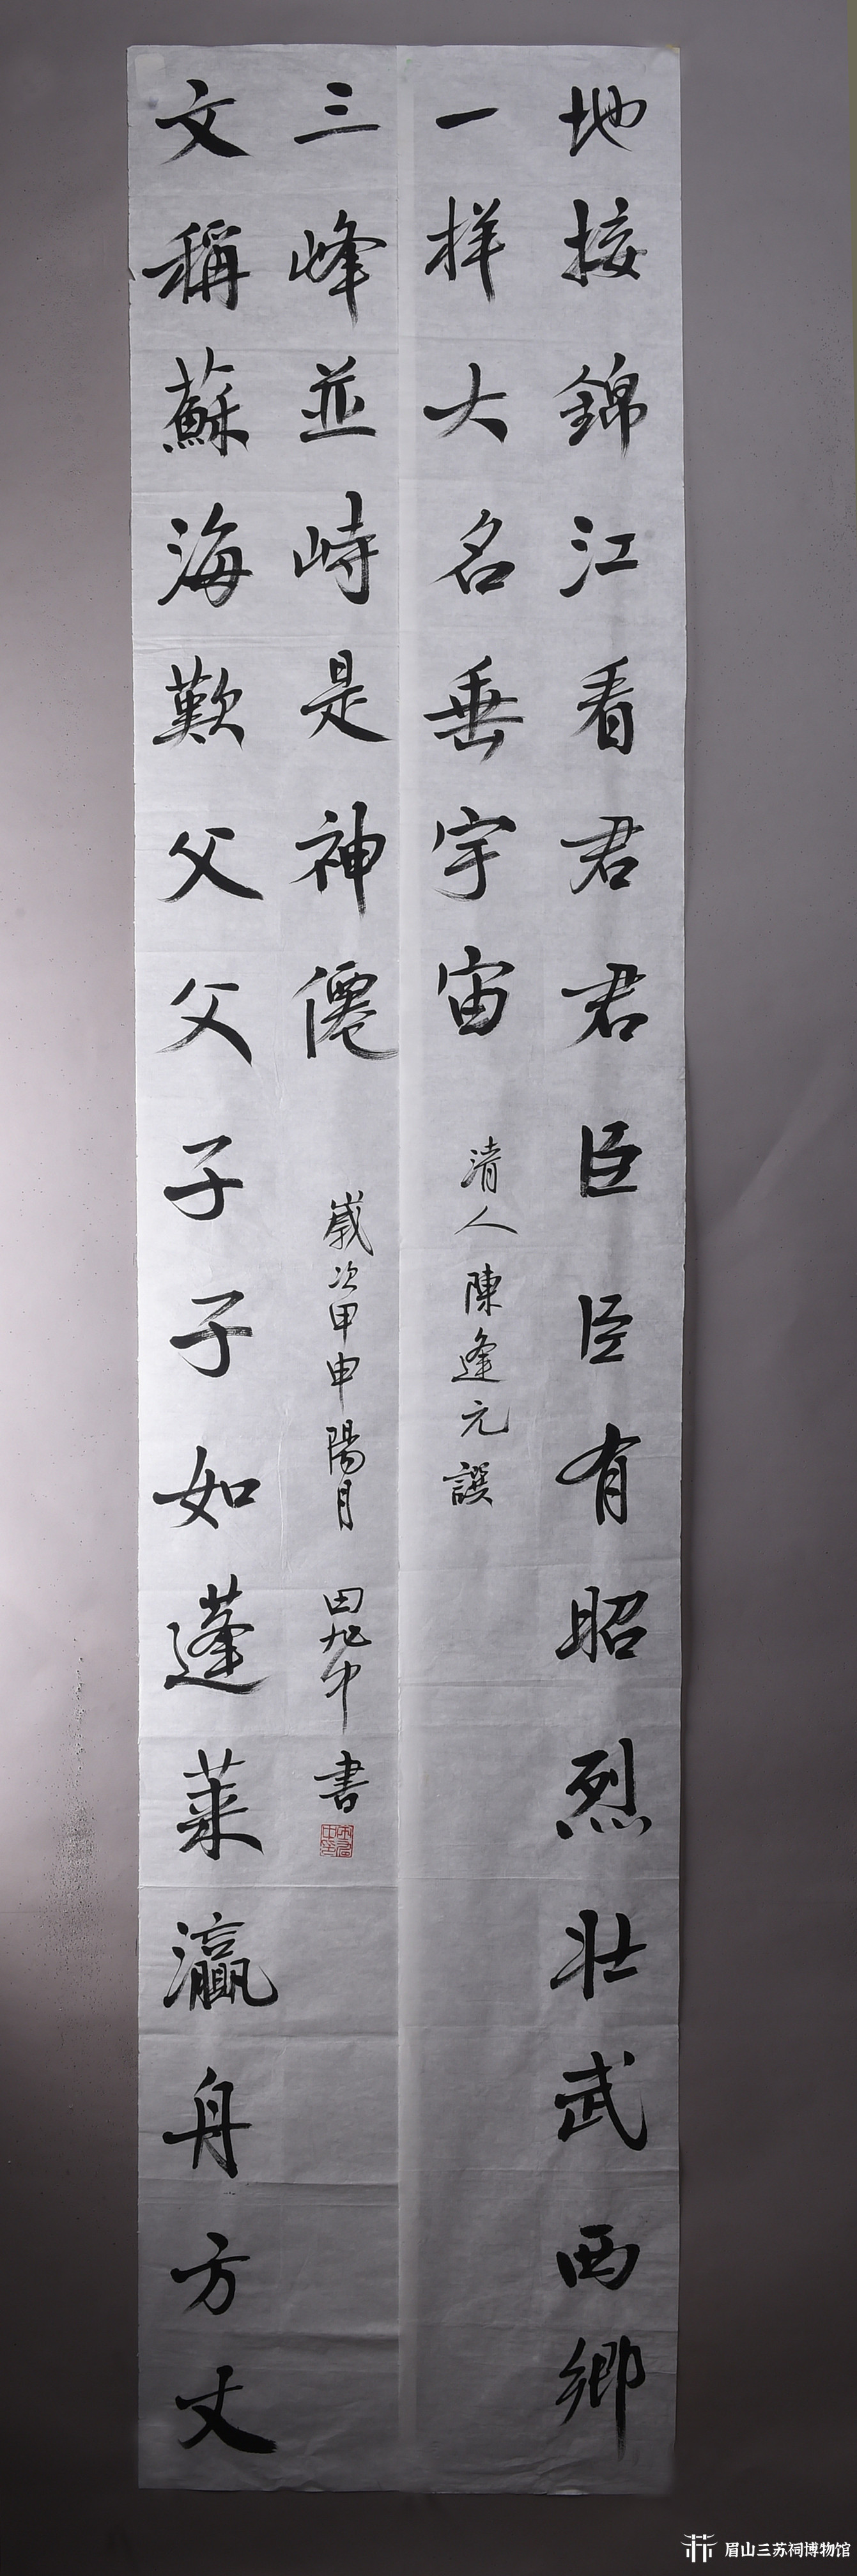 地接錦江看君君臣臣有昭烈壯武西鄉
一样大名垂宇宙
清人陳逢元譔
文稱蘇海歎父父子子如蓬萊瀛舟方丈
三峰並峙是神僊
歲次甲申陽月 田旭中書
眉山三苏祠博物馆